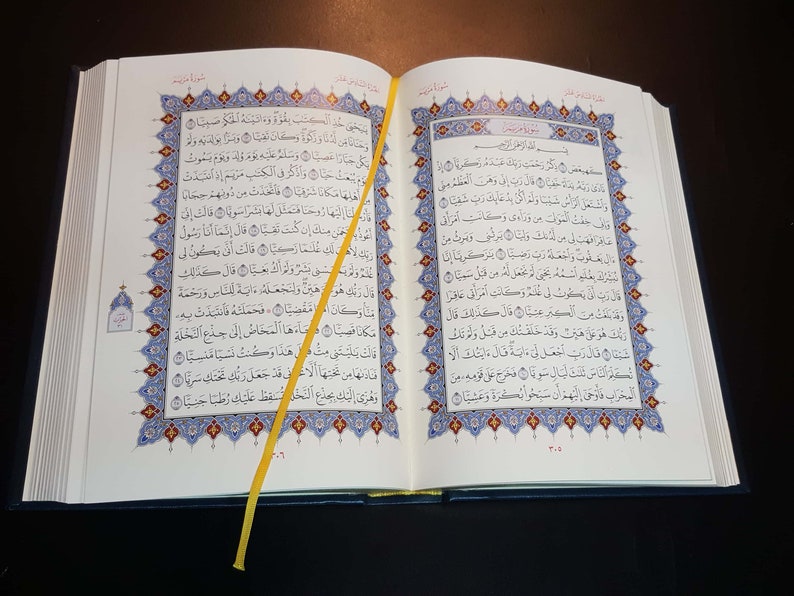 سُورَةُ مَرْيَمَ
الجُزْءُ السَّادِسَ عَشَرَ
سُورَةُ مَرْيَمَ
بِسْمِ ٱللَّهِ ٱلرَّحْمَٰنِ ٱلرَّحِيمِ
كٓهيعٓصٓ ١ ذِكْرُ رَحْمَتِ رَبِّكَ عَبْدَهُۥ زَكَرِيَّآ ٢ إِذْ
نَادَىٰ رَبَّهُۥ نِدَآءً خَفِيًّا ٣ قَالَ رَبِّ إِنِّي وَهَنَ ٱلْعَظْمُ مِنِّي
وَٱشْتَعَلَ ٱلرَّأْسُ شَيْبًا وَلَمْ أَكُنۢ بِدُعَآئِكَ رَبِّ شَقِيًّا ٤
وَإِنِّي خِفْتُ ٱلْمَوَٰلِيَ مِن وَرَآءِي وَكَانَتِ ٱمْرَأَتِي
عَاقِرًا فَهَبْ لِي مِن لَّدُنكَ وَلِيًّا ٥ يَرِثُنِي وَيَرِثُ مِنْ
ءَالِ يَعْقُوبَۖ وَٱجْعَلْهُ رَبِّ رَضِيًّا ٦ يَٰزَكَرِيَّآ إِنَّا
نُبَشِّرُكَ بِغُلَٰمٍ ٱسْمُهُۥ يَحْيَىٰ لَمْ نَجْعَل لَّهُۥ مِن قَبْلُ سَمِيًّا ٧
قَالَ رَبِّ أَنَّىٰ يَكُونُ لِي غُلَٰمٌ وَكَانَتِ ٱمْرَأَتِي عَاقِرًا
وَقَدْ بَلَغْتُ مِنَ ٱلْكِبَرِ عِتِيًّا ٨ قَالَ كَذَٰلِكَ قَالَ
رَبُّكَ هُوَ عَلَيَّ هَيِّنٌ وَقَدْ خَلَقْتُكَ مِن قَبْلُ وَلَمْ تَكُ
شَيْئًا ٩ قَالَ رَبِّ ٱجْعَل لِّيٓ ءَايَةًۚ قَالَ ءَايَتُكَ أَلَّا
تُكَلِّمَ ٱلنَّاسَ ثَلَٰثَ لَيَالٍ سَوِيًّا ١٠ فَخَرَجَ عَلَىٰ قَوْمِهِۦ مِنَ
ٱلْمِحْرَابِ فَأَوْحَىٰٓ إِلَيْهِمْ أَن سَبِّحُوا۟ بُكْرَةً وَعَشِيًّا ١١
٣٠٥
الجُزْءُ السَّادِسَ عَشَرَ
سُورَةُ مَرْيَمَ
يَٰيَحْيَىٰ خُذِ ٱلْكِتَٰبَ بِقُوَّةٍۖ وَءَاتَيْنَٰهُ ٱلْحُكْمَ صَبِيًّا ١٢
وَحَنَانًا مِّن لَّدُنَّا وَزَكَوٰةًۖ وَكَانَ تَقِيًّا ١٣ وَبَرًّۢا بِوَٰلِدَيْهِ وَلَمْ
يَكُن جَبَّارًا عَصِيًّا ١٤ وَسَلَٰمٌ عَلَيْهِ يَوْمَ وُلِدَ وَيَوْمَ يَمُوتُ
وَيَوْمَ يُبْعَثُ حَيًّا ١٥ وَٱذْكُرْ فِي ٱلْكِتَٰبِ مَرْيَمَ إِذِ ٱنتَبَذَتْ
مِنْ أَهْلِهَا مَكَانًا شَرْقِيًّا ١٦ فَٱتَّخَذَتْ مِن دُونِهِمْ حِجَابًا
فَأَرْسَلْنَآ إِلَيْهَا رُوحَنَا فَتَمَثَّلَ لَهَا بَشَرًا سَوِيًّا ١٧ قَالَتْ إِنِّيٓ
أَعُوذُ بِٱلرَّحْمَٰنِ مِنكَ إِن كُنتَ تَقِيًّا ١٨ قَالَ إِنَّمَآ أَنَا۠ رَسُولُ
رَبِّكِ لِأَهَبَ لَكِ غُلَٰمًا زَكِيًّا ١٩ قَالَتْ أَنَّىٰ يَكُونُ لِي
غُلَٰمٌ وَلَمْ يَمْسَسْنِي بَشَرٌ وَلَمْ أَكُ بَغِيًّا ٢٠ قَالَ كَذَٰلِكِ
قَالَ رَبُّكِ هُوَ عَلَيَّ هَيِّنٌۖ وَلِنَجْعَلَهُۥٓ ءَايَةً لِّلنَّاسِ وَرَحْمَةً
مِّنَّاۚ وَكَانَ أَمْرًا مَّقْضِيًّا ٢١ فَحَمَلَتْهُ فَٱنتَبَذَتْ بِهِۦ
مَكَانًا قَصِيًّا ٢٢ فَأَجَآءَهَا ٱلْمَخَاضُ إِلَىٰ جِذْعِ ٱلنَّخْلَةِ
قَالَتْ يَٰلَيْتَنِي مِتُّ قَبْلَ هَٰذَا وَكُنتُ نَسْيًا مَّنسِيًّا ٢٣
فَنَادَىٰهَا مِن تَحْتِهَآ أَلَّا تَحْزَنِي قَدْ جَعَلَ رَبُّكِ تَحْتَكِ سَرِيًّا ٢٤
وَهُزِّيٓ إِلَيْكِ بِجِذْعِ ٱلنَّخْلَةِ تُسَٰقِطْ عَلَيْكِ رُطَبًا جَنِيًّا ٢٥
٣٠٦